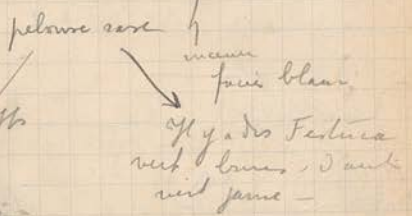 pelouse rase
faciès blanc
Il y a des Festuca
vert brun, d'autr
vert jaune —